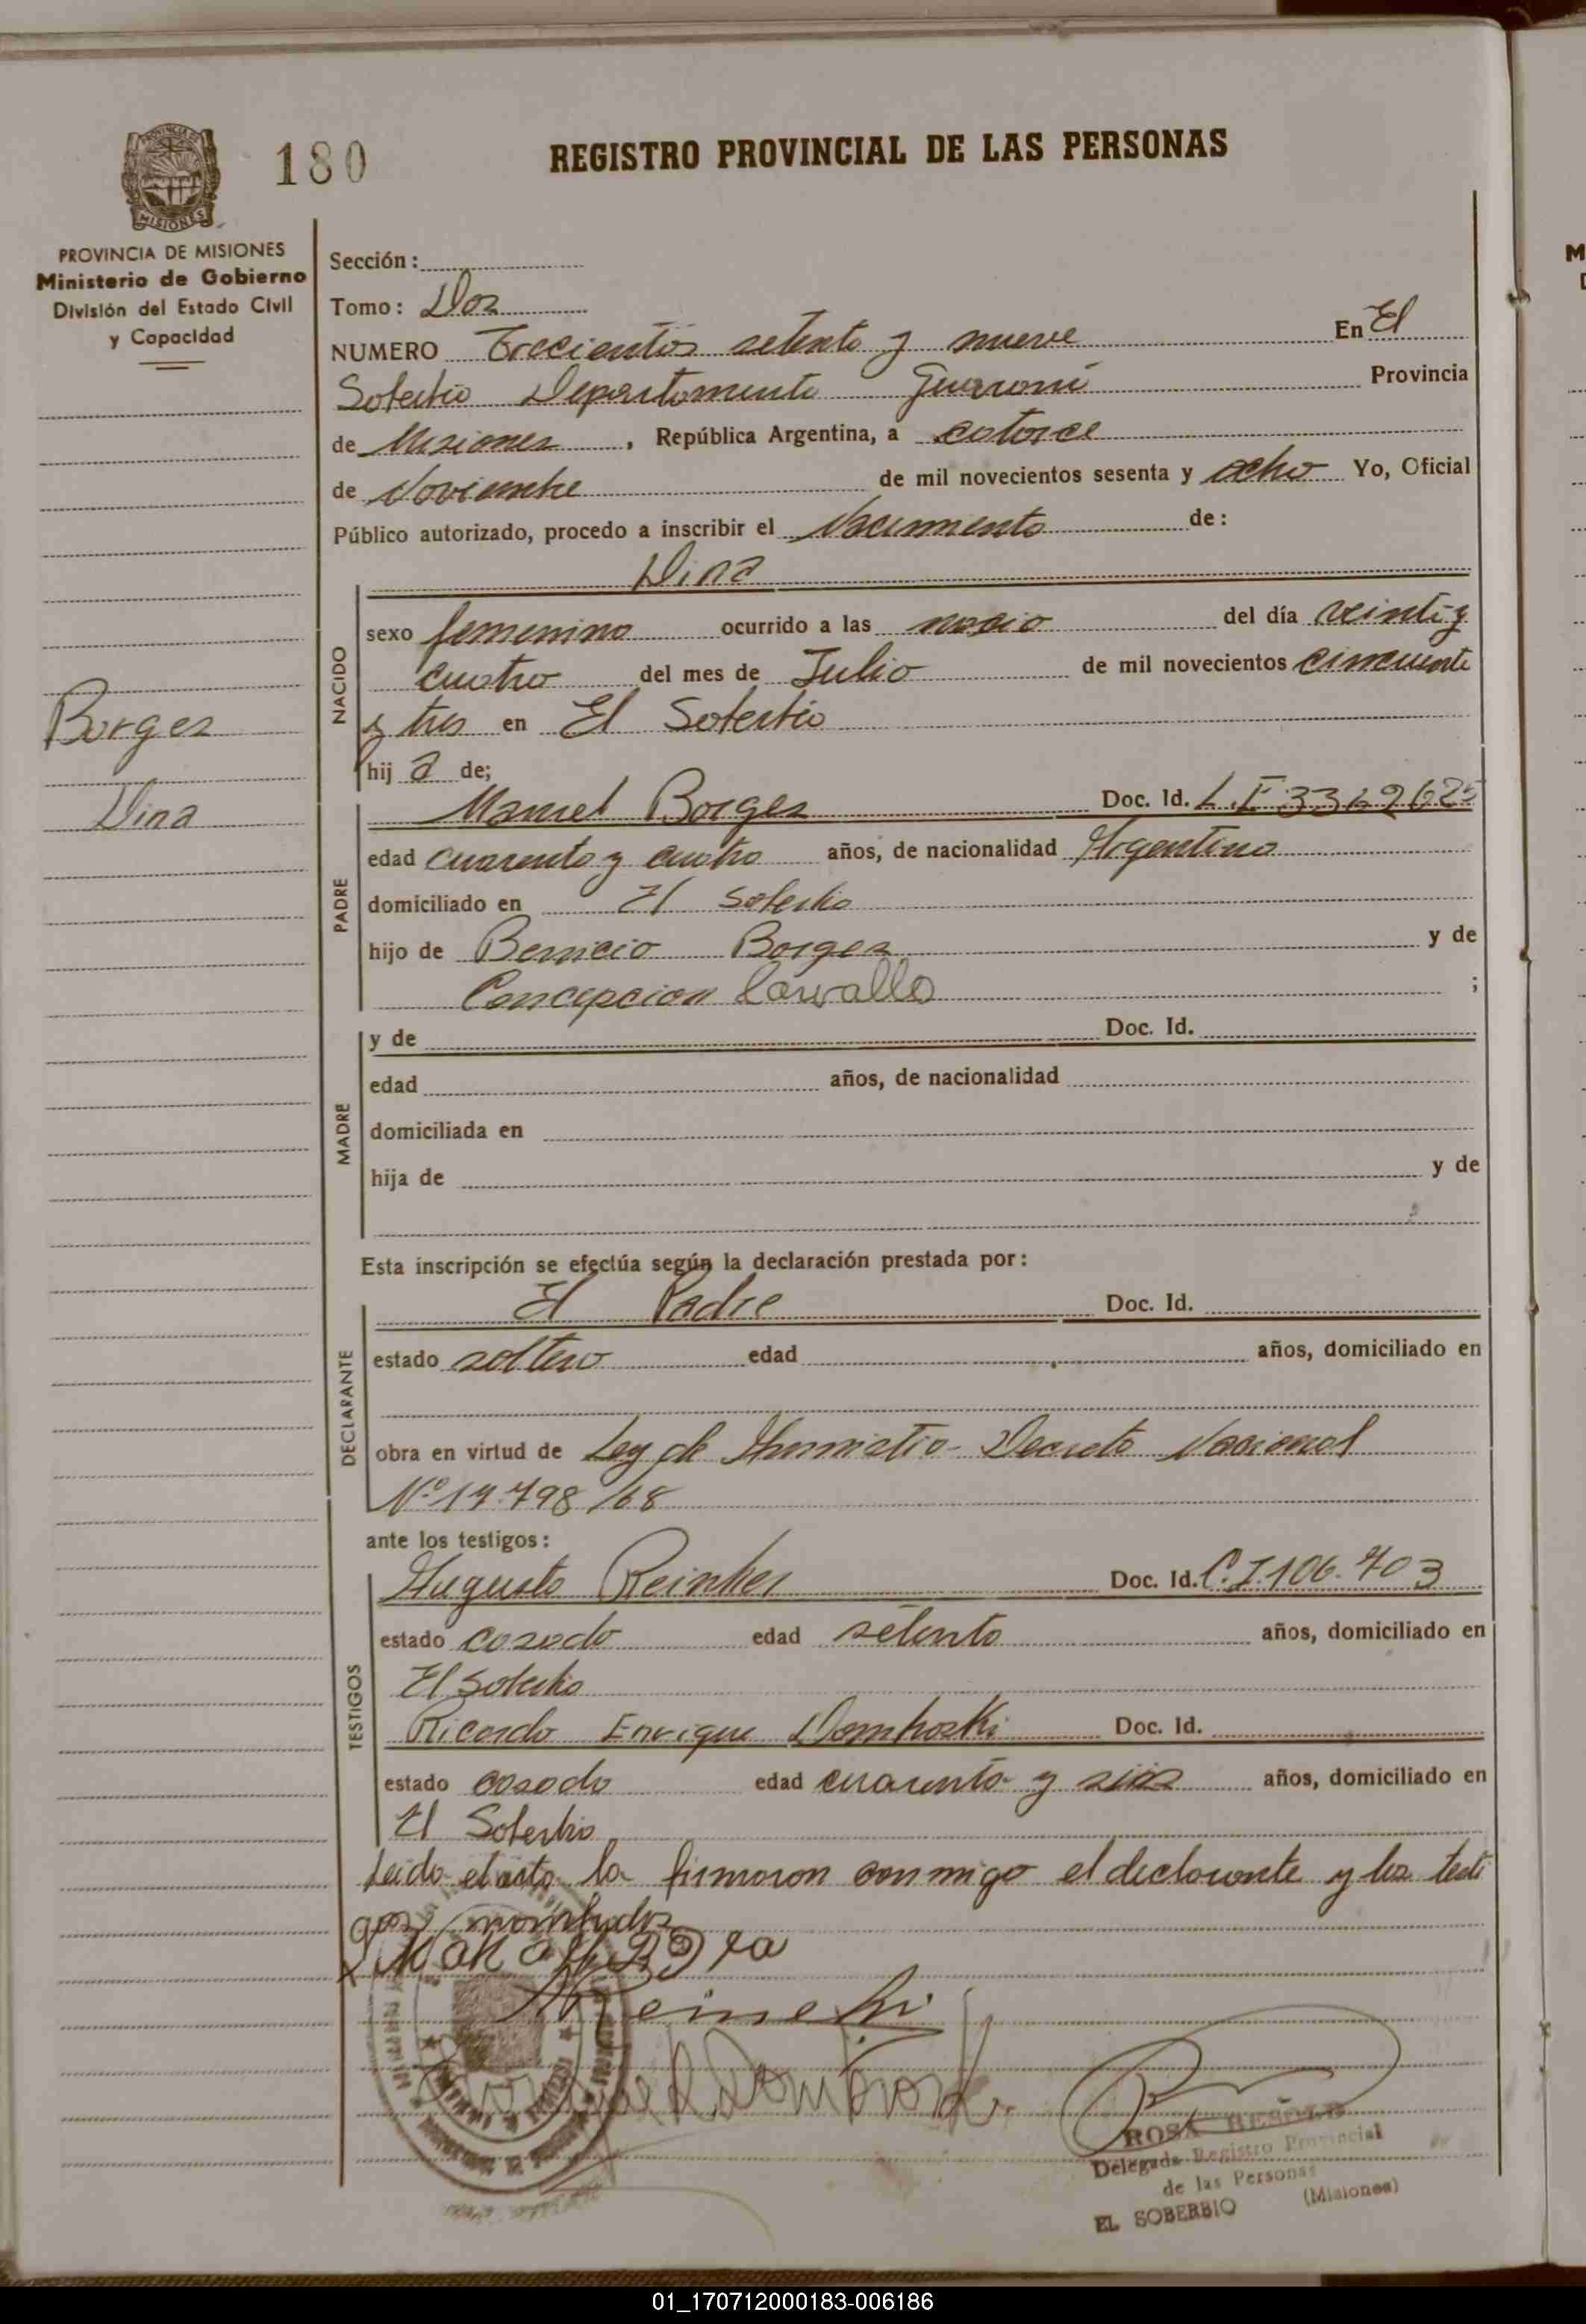 180
REGISTRO PROVINCIAL DE LAS PERSONAS
PROVINCIA DE MISIONES
MISIONES
PROVINCIA DE MISIONES
Ministerio de Gobierno
División del Estado Civil
y Capacidad
Borges
Dina
Sección:
Tomo: Dos
NUMERO Trecientos setenta y nueve En El
Soberbio Departamento Guaraní Provincia
de Misiones, República Argentina, a catorce
de Noviembre de mil novecientos sesenta y ocho Yo, Oficial
Público autorizado, procedo a inscribir el Nacimiento de:
Dina
NACIDO
sexo femenino ocurrido a las del día veinti y
cuatro del mes de Julio de mil novecientos cincuenta
y tres en El Soberbio
hij a de;
PADRE
Manuel Borges Doc. Id. L.E 3369625
edad cuarenta y cuatro años, de nacionalidad Argentino
domiciliado en El Soberbio
hijo de Borges y de
Concepcion Carvallo ;
MADRE
y de Doc. Id.
edad años, de nacionalidad
domiciliada en
hija de y de
Esta inscripción se efectúa según la declaración prestada por:
DECLARANTE
El Padre Doc. Id.
estado soltero edad años, domiciliado en
obra en virtud de Ley de Decreto Nacional
Nº 17.798/68
ante los testigos:
TESTIGOS
Augusto Doc. Id. C.I. 106.703
estado casado edad setenta años, domiciliado en
El Soberbio
Ricardo Enrique Domboski Doc. Id.
estado casado edad cuarenta y seis años, domiciliado en
El Soberbio
Leido el acta la firmaron conmigo el declarante y los testi
gos nombrados
ROSA
Delegada Registro Provincial
de las Personas
EL SOBERBIO (Misiones)
01_170712000183-006186